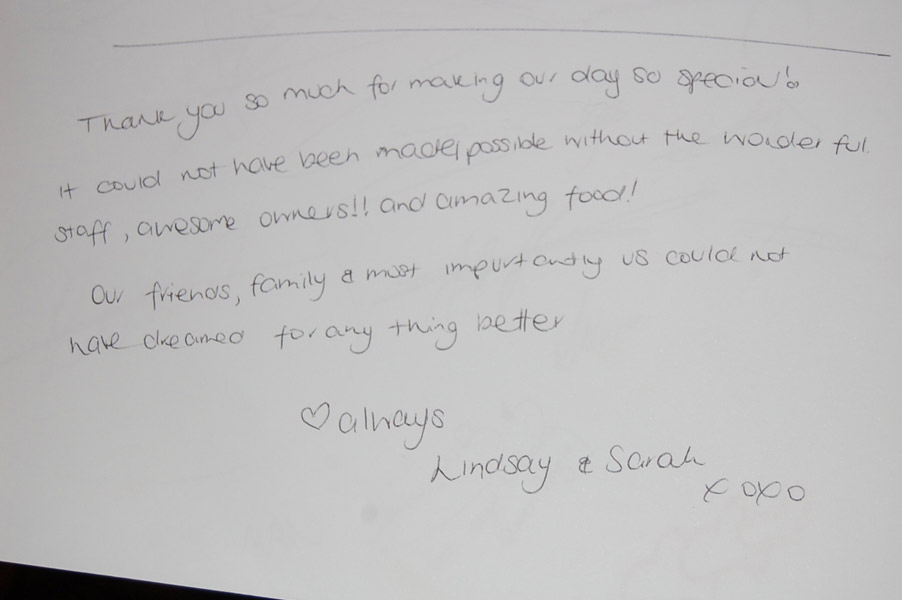 Thank you so much for making our day so special!
it could not have been made possible without the wonderful
staff, awesome owners!! and amazing food!
Our friends, family & most importantly us could not
have dreamed for any thing better
♡ always
Lindsay & Sarah
xoxo